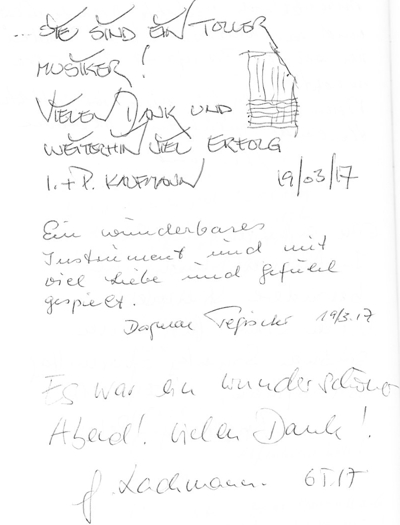 ... SIE SIND EIN TOLLER
MUSIKER!
VIELEN DANK UND
WEITERHIN VIEL ERFOLG
I. + P. KAUFMANN 19/03/17
Ein wunderbares
Instrument und mit
viel Liebe und Gefühl
gespielt.
Dagmar 19/3.17
Es war ein wunderschöner
Abend! Vielen Dank!
Lachmann.